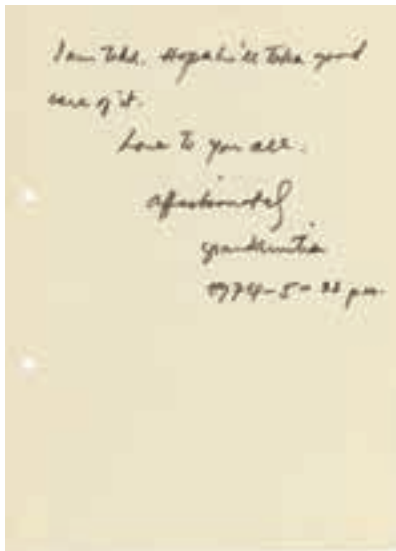 I am told. Hope he'll take good
care of it.
Love to you all.
affectionately
grandmother
1974-5- pm.